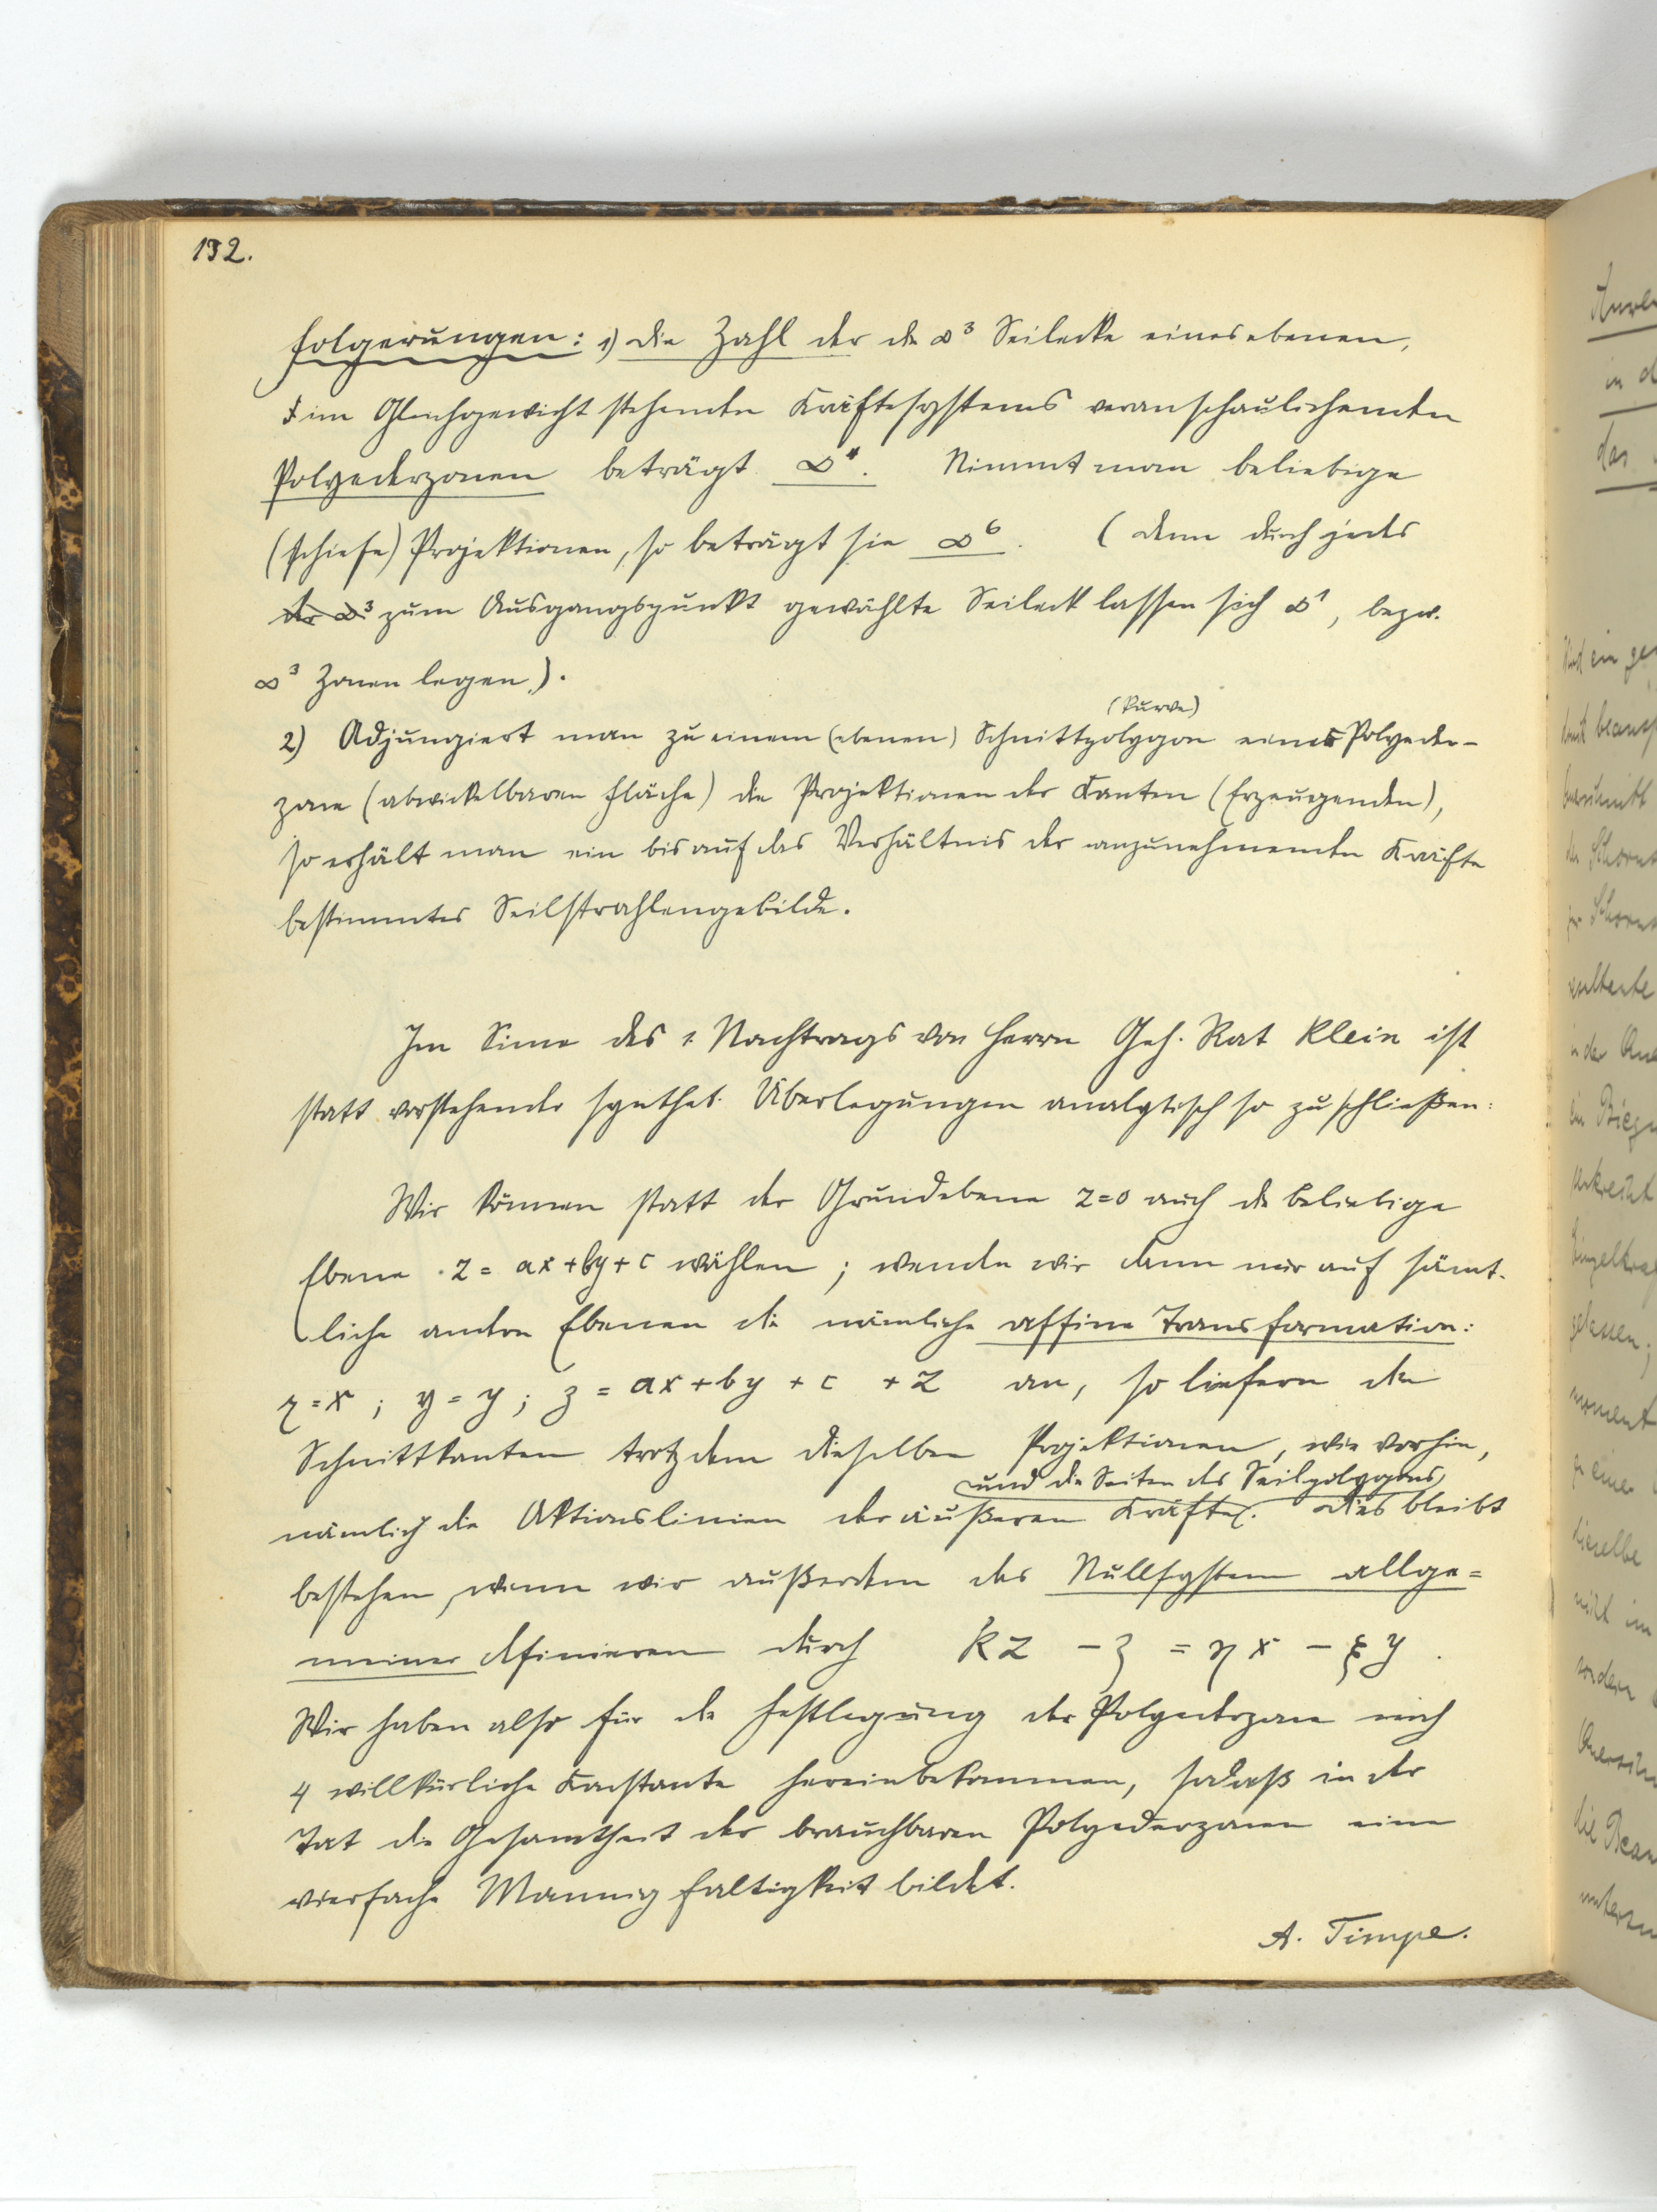 132.
Folgerungen: 1) Die Zahl der die ∞³ Seilecke eines ebenen,
im Gleichgewicht stehenden Kräftesystems veranschaulichenden
Polyederzonen beträgt ∞⁴. Nimmt man beliebige
(schiefe) Projektionen, so beträgt sie ∞⁶. (denn durch jedes
der ∞³ zum Ausgangspunkt gewählte Seileck lassen sich ∞¹, bezw.
∞³ Zonen legen.).
(kurve)
2) Adjungiert man zu einem (ebenen) Schnittpolygon einer Polyeder-
zone (abwickelbaren Fläche) die Projektionen der Kanten (Erzeugenden),
so erhält man ein bis auf das Verhältnis der anzunehmenden Kräfte
bestimmtes Seilstrahlengebilde.
Im Sinne des 1. Nachtrags von Herrn Geh. Rat Klein ist
statt vorstehender synthet. Überlegungen analytisch so zu schließen:
Wir können statt der Grundebene z=0 auch die beliebige
Ebene z = ax+by+c wählen; wenden wir dann nur auf sämt-
liche andren Ebenen die nämliche affine Transformation:
𝔵=x; 𝔶=y; 𝔷 = ax+by + c + z an, so liefern die
Schnittkanten trotzdem dieselben Projektionen, wie vorhin,
und die Seiten des Seilpolygons
nämlich die Aktionslinien der äußeren Kräfte. Dies bleibt
bestehen, wenn wir außerdem das Nullsystem allge=
meiner definieren durch kz - ζ = ηx - ξy.
Wir haben also für die Festlegung der Polyederzone noch
4 willkürliche Konstante hereinbekommen, sodaß in der
Tat die Gesamtheit der brauchbaren Polyederzonen eine
vierfache Mannigfaltigkeit bildet.
A. Timpe.